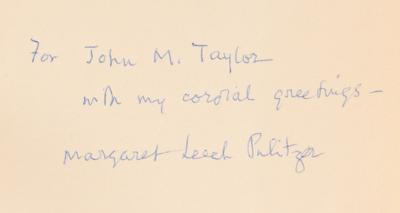 For John M. Taylor
with my cordial greetings –
Margaret Leech Pulitzer